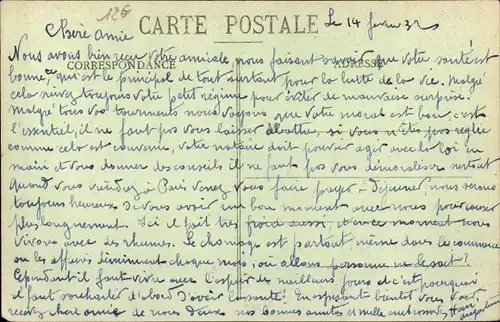 12 F
CARTE POSTALE
Le 14 février 32
Chère Amie
CORRESPONDANCE
ADRESSE
Nous avons bien reçu votre amicale nous faisant savoir que votre santé est
bonne, ce qui est le principal de tout surtout pour la lutte de la vie. Malgré
cela suivez toujours votre petit régime pour éviter de mauvaise surprise.
Malgré tous vos tourments nous voyons que votre moral est bon, c'est
l'essentiel, il ne faut pas vous laisser abattre, si vous n'êtes pas réglée
comme cela est convenu, votre notaire doit pouvoir agir avec la loi en
main et vous donner des conseils il ne faut pas vous démoraliser surtout.
Quand vous viendrez à Paris venez vous faire payer à déjeuner nous serons
toujours heureux de vous avoir un bon moment avec nous pour causer
plus longuement. Ici il fait très froid aussi, et en ce moment nous
vivons avec des rhumes. Le chomage est partout, même dans le commerce
ou les affaires diminuent chaque mois, où allons personne ne le sait !
Cependant il faut vivre avec l'espoir des meilleurs jours c'est pourquoi
il faut souhaiter d'abord d'avoir la santé ! En espérant bientôt vous voir
recevez chère amie de nous deux nos bonnes amitiés et mille embrassades